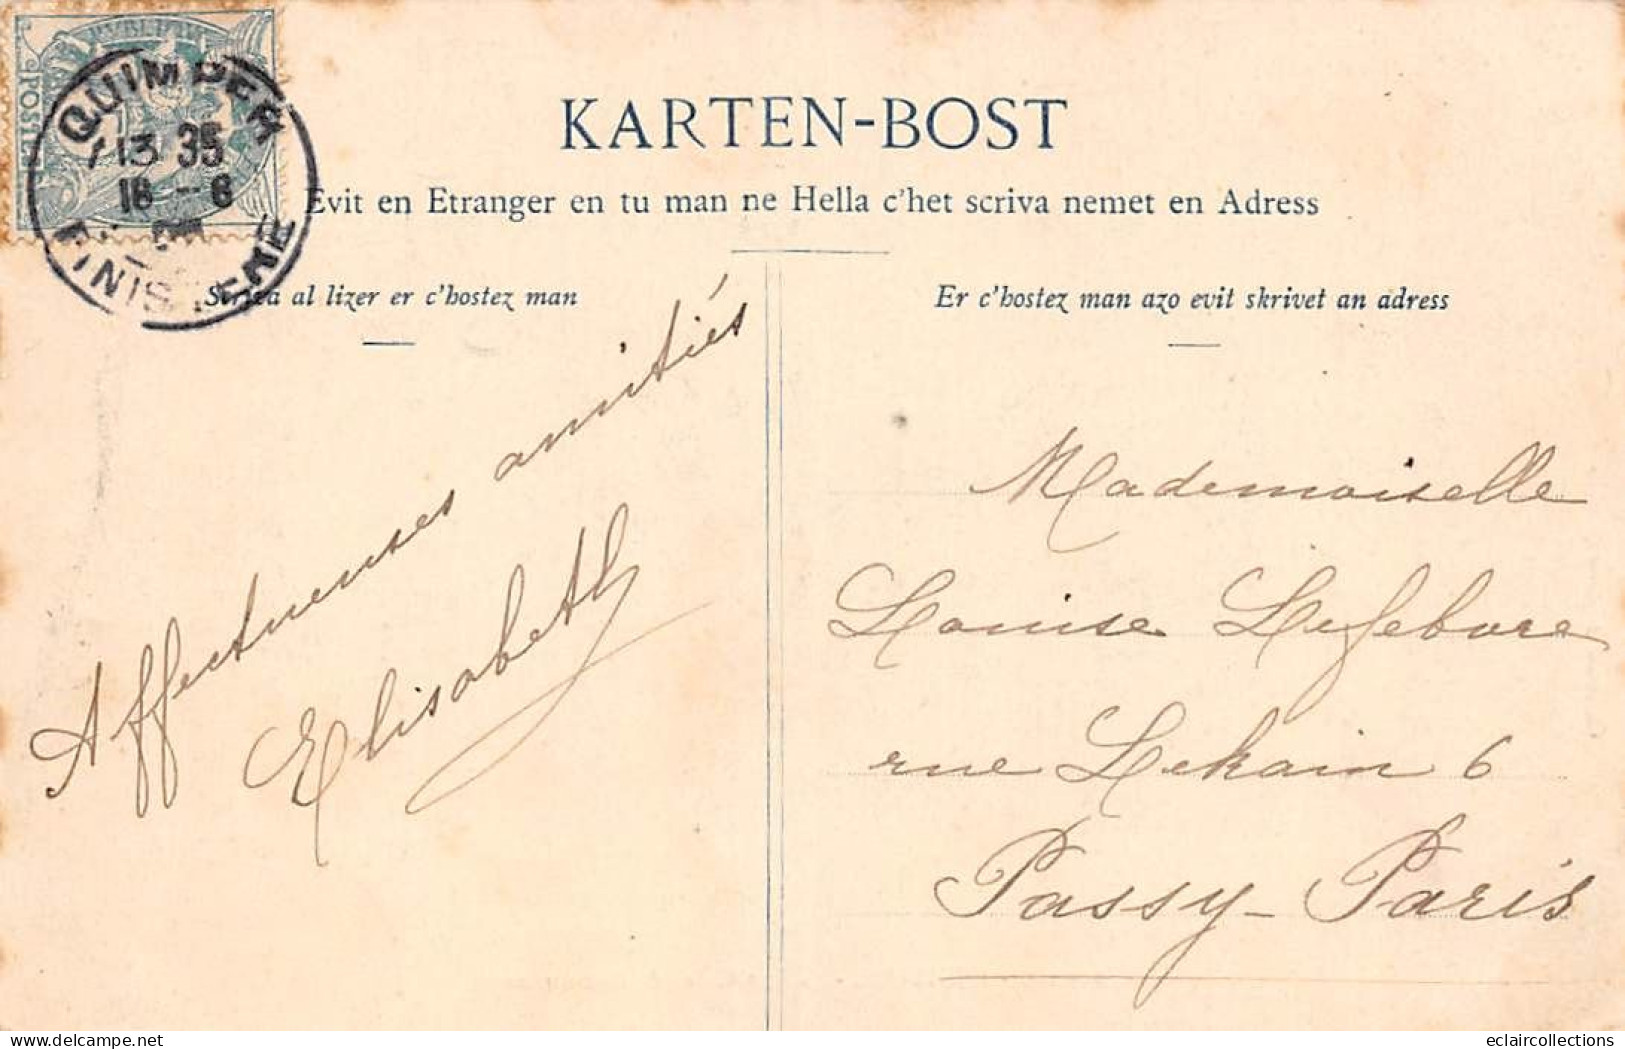 POSTES
QUIMPER
13 35
18 -8
FINISTERE
KARTEN-BOST
Evit en Etranger en tu man ne Hella c'het scriva nemet en Adress
al lizer er c'hostez man
Er c'hostez man azo evit skrivet an adress
Affectueuses amitiés
Elisabeth
Mademoiselle
Louise Lefebvre
rue Lekain 6
Passy - Paris
eclaircollections